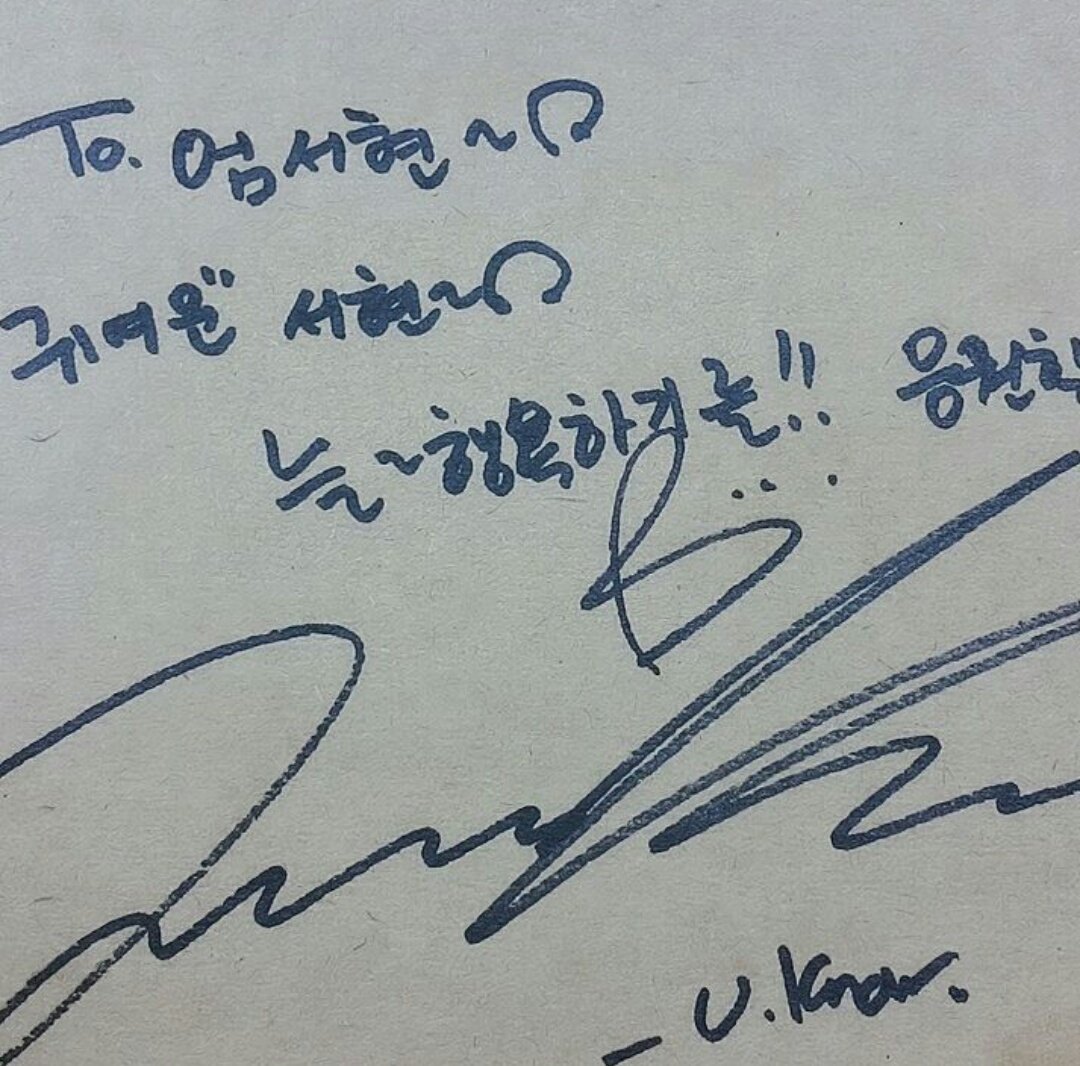 To. 엄서현~
귀여운 서현~
늘~행복하기를!! 응원할
- U.Know.